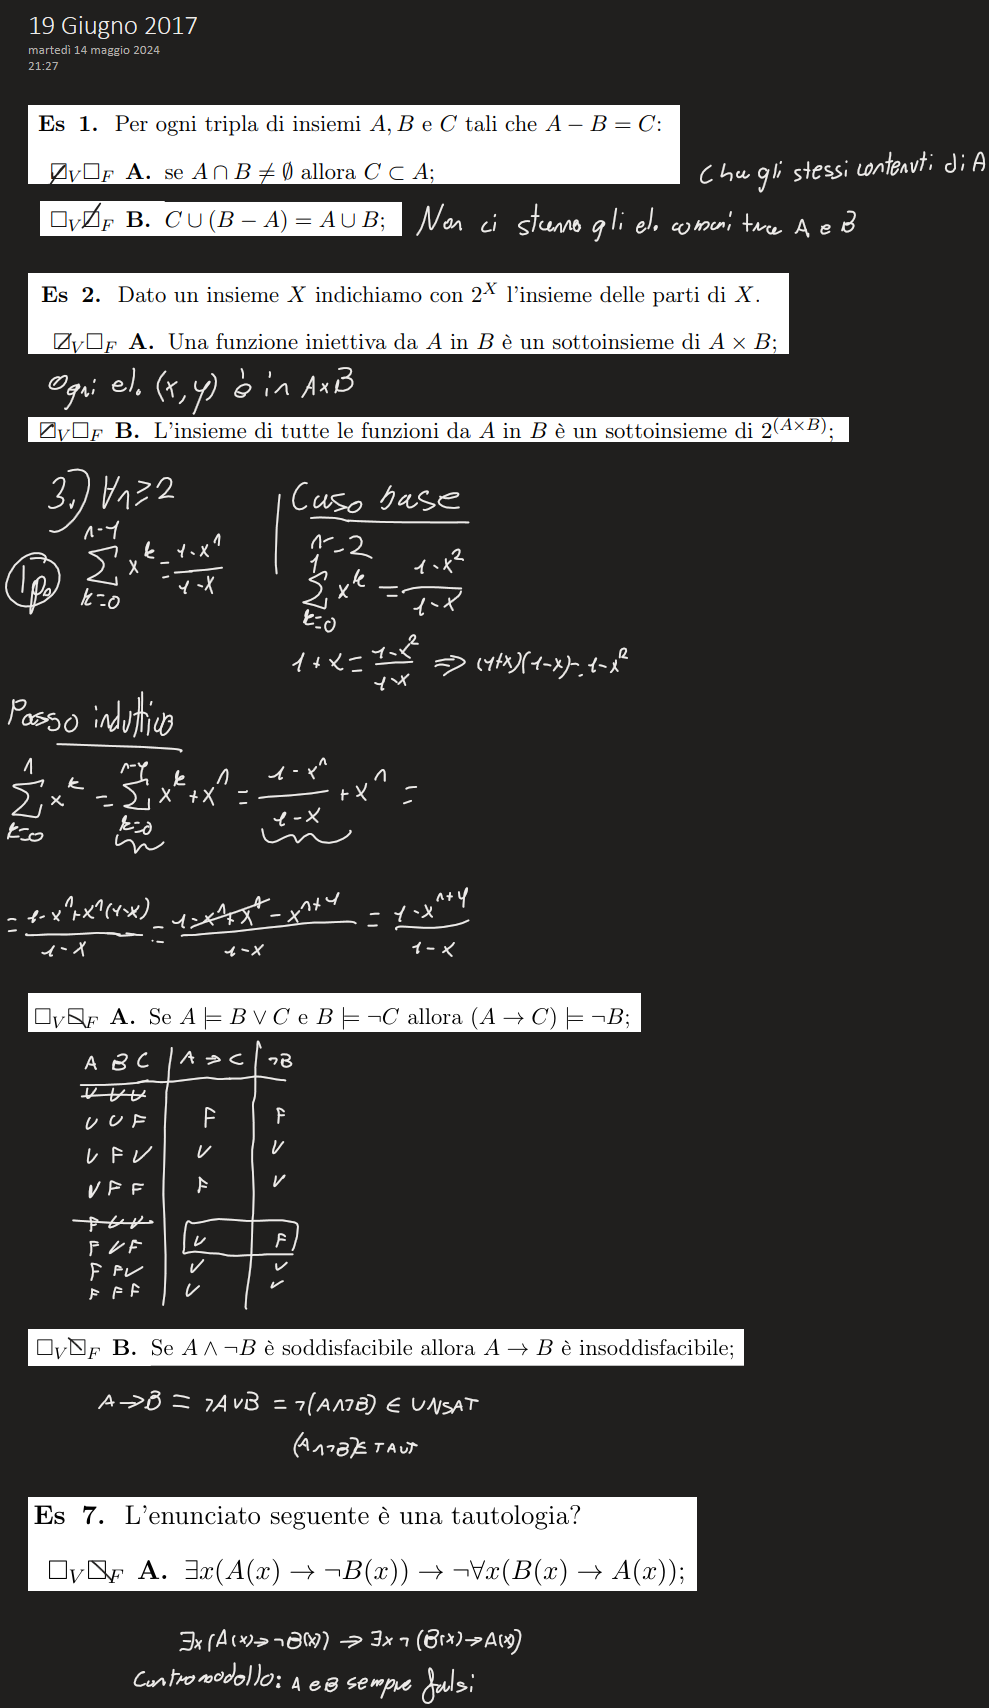 19 Giugno 2017
martedì 14 maggio 2024
21:27
Es 1. Per ogni tripla di insiemi A, B e C tali che A − B = C:
☑V☐F A. se A ∩ B ≠ ∅ allora C ⊂ A;
C ha gli stessi contenuti di A
☐V☑F B. C ∪ (B − A) = A ∪ B;
Non ci stanno gli el. comuni tra A e B
Es 2. Dato un insieme X indichiamo con 2^X l'insieme delle parti di X.
☑V☐F A. Una funzione iniettiva da A in B è un sottoinsieme di A × B;
Ogni el. (x, y) è in A×B
☑V☐F B. L'insieme di tutte le funzioni da A in B è un sottoinsieme di 2^(A×B);
3.) ∀n≥2
Ip. ∑_{k=0}^{n-1} x^k = (1-x^n)/(1-x)
Caso base
n=2
∑_{k=0}^{1} x^k = (1-x^2)/(1-x)
1+x = (1-x^2)/(1-x) ⇒ (1+x)(1-x) = 1-x^2
Passo induttivo
∑_{k=0}^{n} x^k = ∑_{k=0}^{n-1} x^k + x^n = (1-x^n)/(1-x) + x^n =
= (1-x^n+x^n(1-x))/(1-x) = (1-x^n+x^n-x^{n+1})/(1-x) = (1-x^{n+1})/(1-x)
☐V☑F A. Se A ⊨ B ∨ C e B ⊨ ¬C allora (A → C) ⊨ ¬B;
A B C | A → C | ¬B
V V V
V V F F F
V F V V V
V F F F V
F V V
F V F V F
F F V V V
F F F V V
☐V☑F B. Se A ∧ ¬B è soddisfacibile allora A → B è insoddisfacibile;
A→B ≡ ¬A∨B = ¬(A∧¬B) ∈ UNSAT
(A∧¬B) ∈ TAUT
Es 7. L'enunciato seguente è una tautologia?
☐V☑F A. ∃x(A(x) → ¬B(x)) → ¬∀x(B(x) → A(x));
∃x(A(x)→¬B(x)) → ∃x¬(B(x)→A(x))
Contromodello: A e B sempre falsi